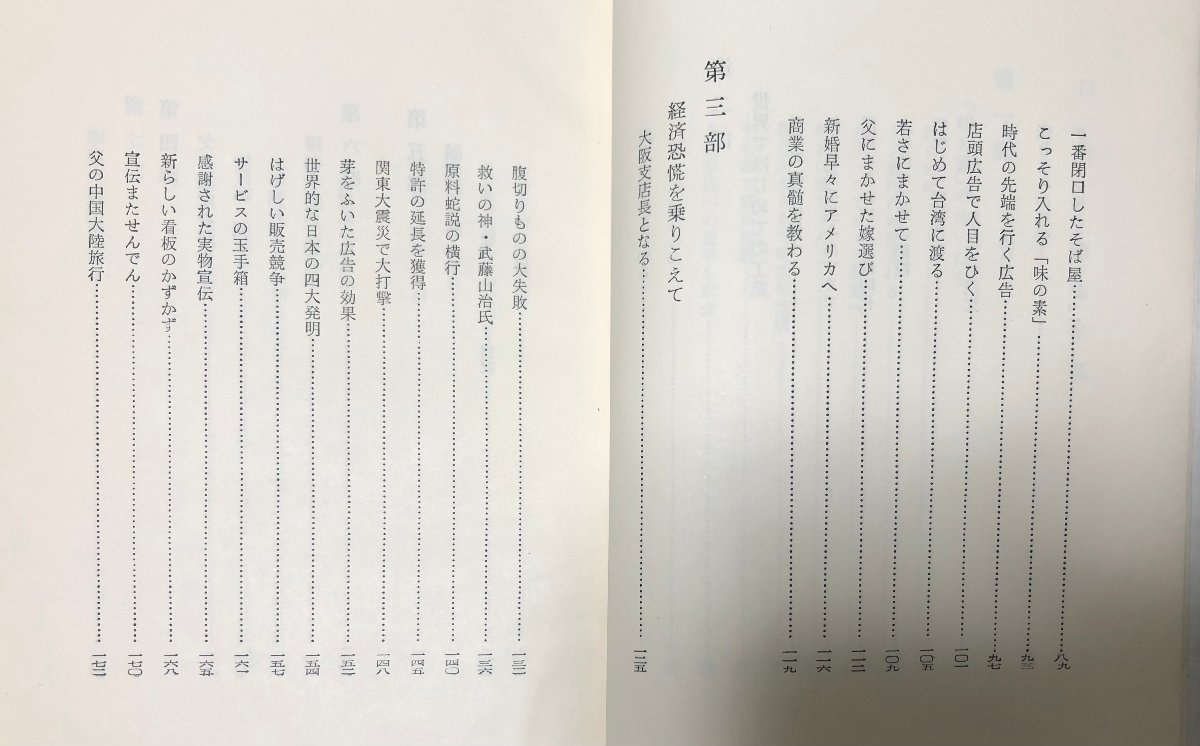 一番閉口したそば屋……八九
こっそり入れる「味の素」……九三
時代の先端を行く広告……九七
店頭広告で人目をひく……一〇一
はじめて台湾に渡る……一〇五
若さにまかせて……一〇九
父にまかせた嫁選び……一一二
新婚早々にアメリカへ……一一六
商業の真髄を教わる……一一九
第三部
経済恐慌を乗りこえて
大阪支店長となる……一二五
腹切りものの大失敗……一三二
救いの神・武藤山治氏……一三六
原料蛇説の横行……一四〇
特許の延長を獲得……一四五
関東大震災で大打撃……一四八
芽をふいた広告の効果……一五二
世界的な日本の四大発明……一五四
はげしい販売競争……一五七
サービスの玉手箱……一六一
感謝された実物宣伝……一六五
新らしい看板のかずかず……一六八
宣伝またせんでん……一七〇
父の中国大陸旅行……一七二